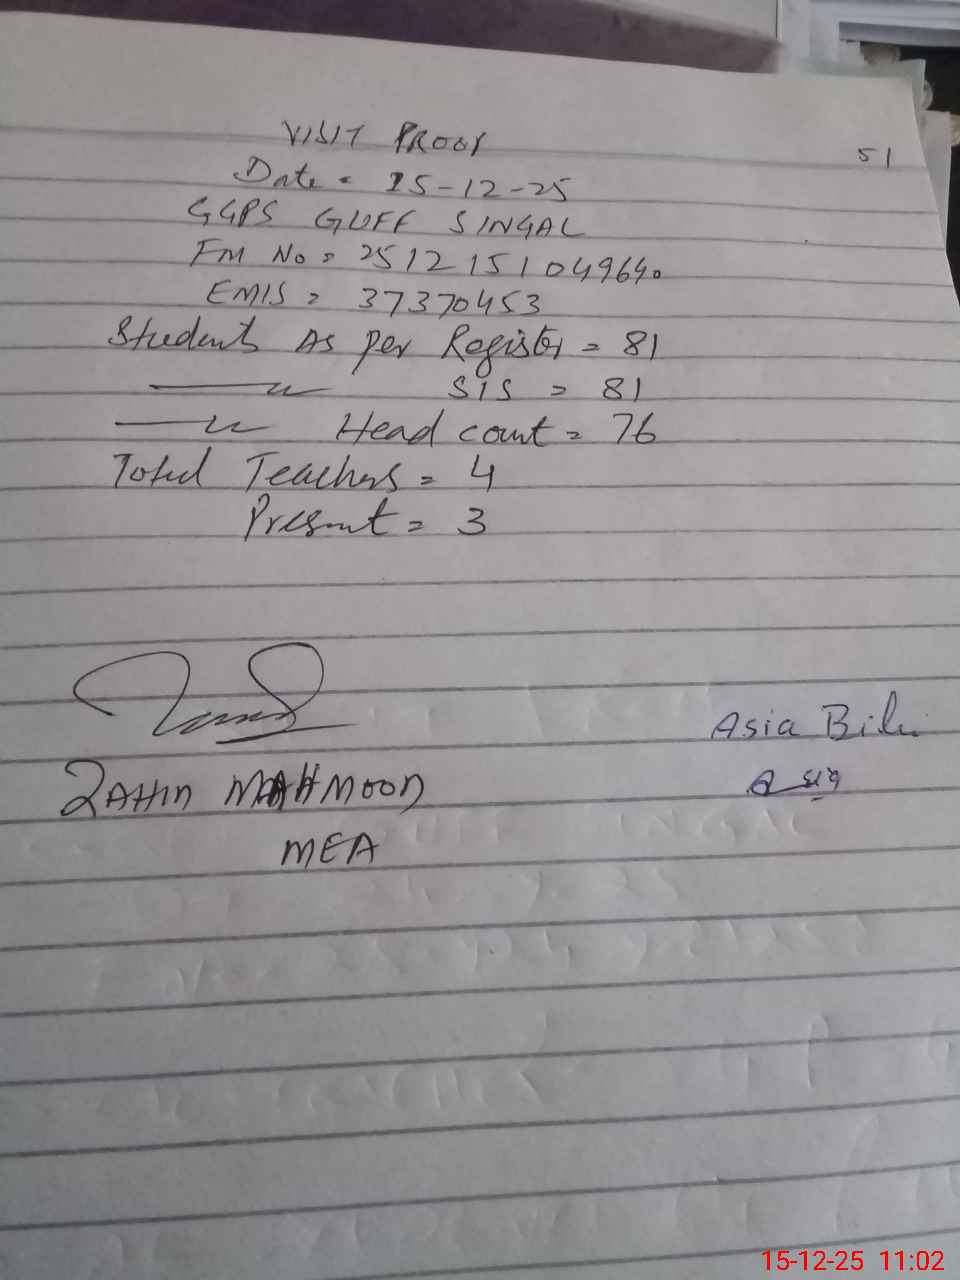 51
VISIT PROOF
Date = 15-12-25
GGPS GUFF SINGAL
FM No = 2512151049640
EMIS = 37370453
Students As per Register = 81
SIS = 81
Head count = 76
Total Teachers = 4
Present = 3
Asia Bibi
MAHMOOD
MEA
15-12-25 11:02